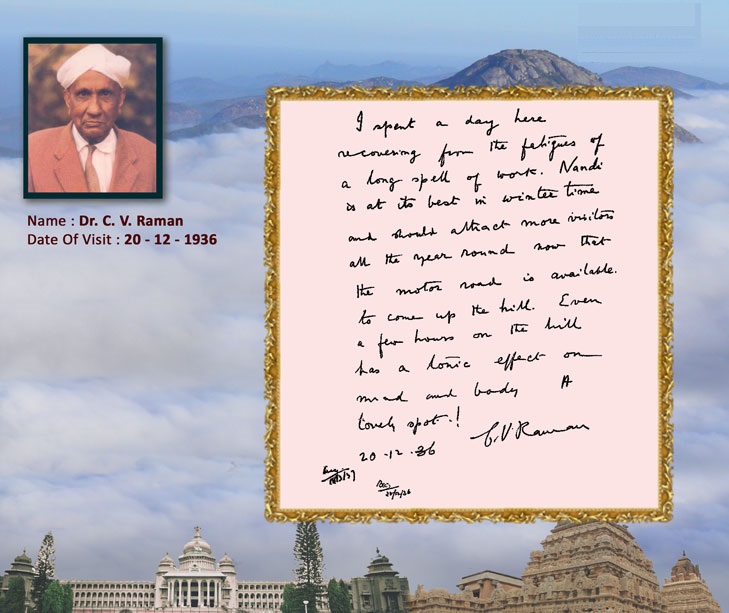 Name : Dr. C. V. Raman
Date Of Visit : 20 - 12 - 1936
I spent a day here
recovering from the fatigues of
a long spell of work. Nandi
is at its best in winter time
and should attract more visitors
all the year round now that
the motor road is available.
to come up the hill. Even
a few hours on the hill
has a tonic effect on
mind and body A
lovely spot.!
C.V.Raman
20-12.36